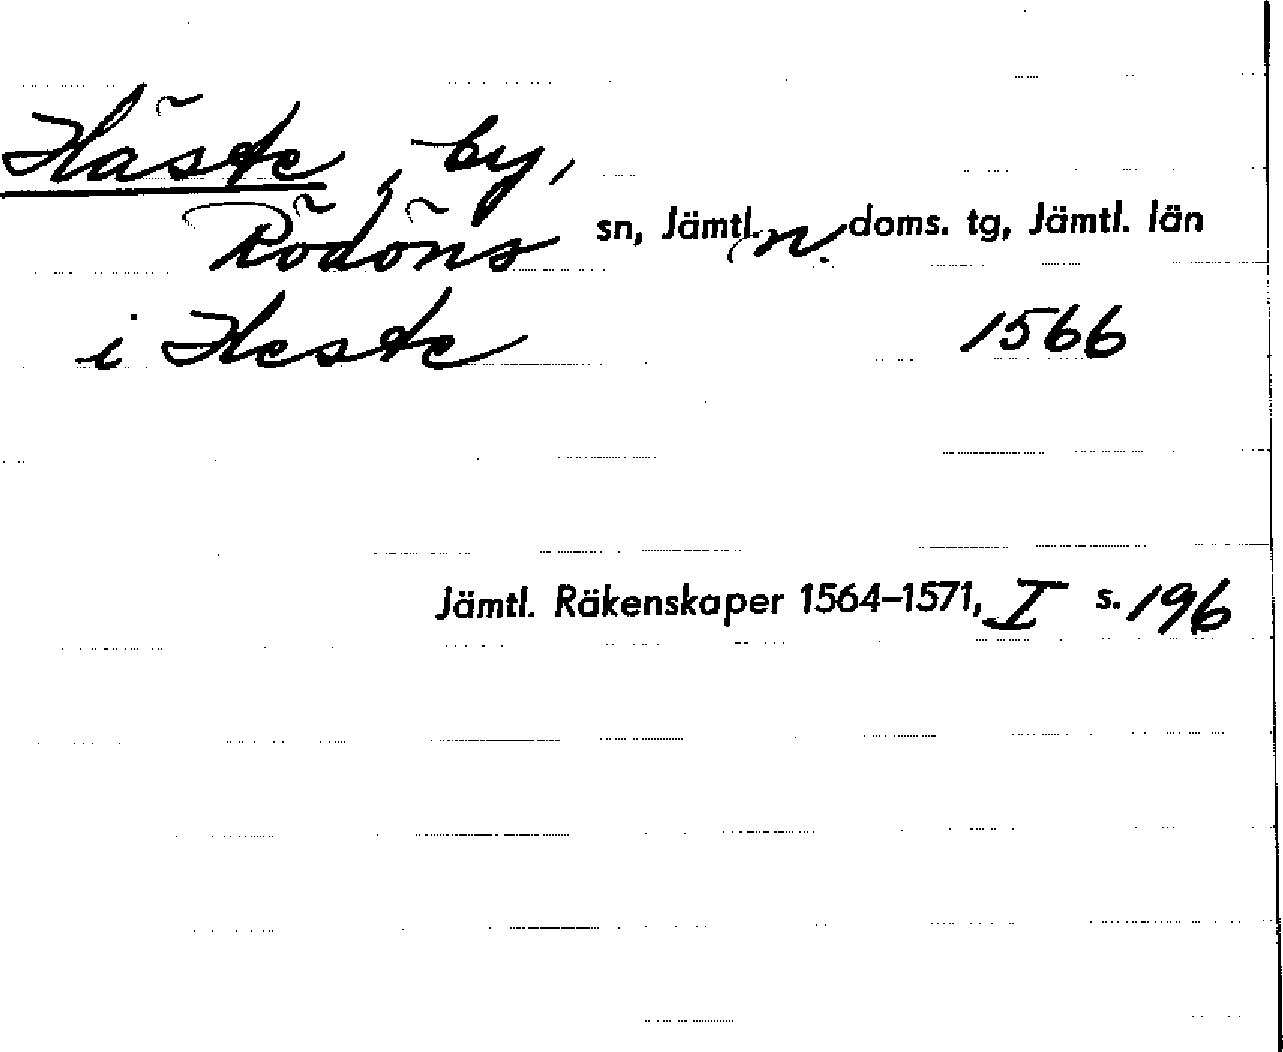 Häste, by,
Rödöns sn, Jämtl. n. doms. tg, Jämtl. län
i Heste 1566
Jämtl. Räkenskaper 1564–1571, I s. 196